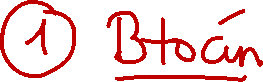 ① Btoán